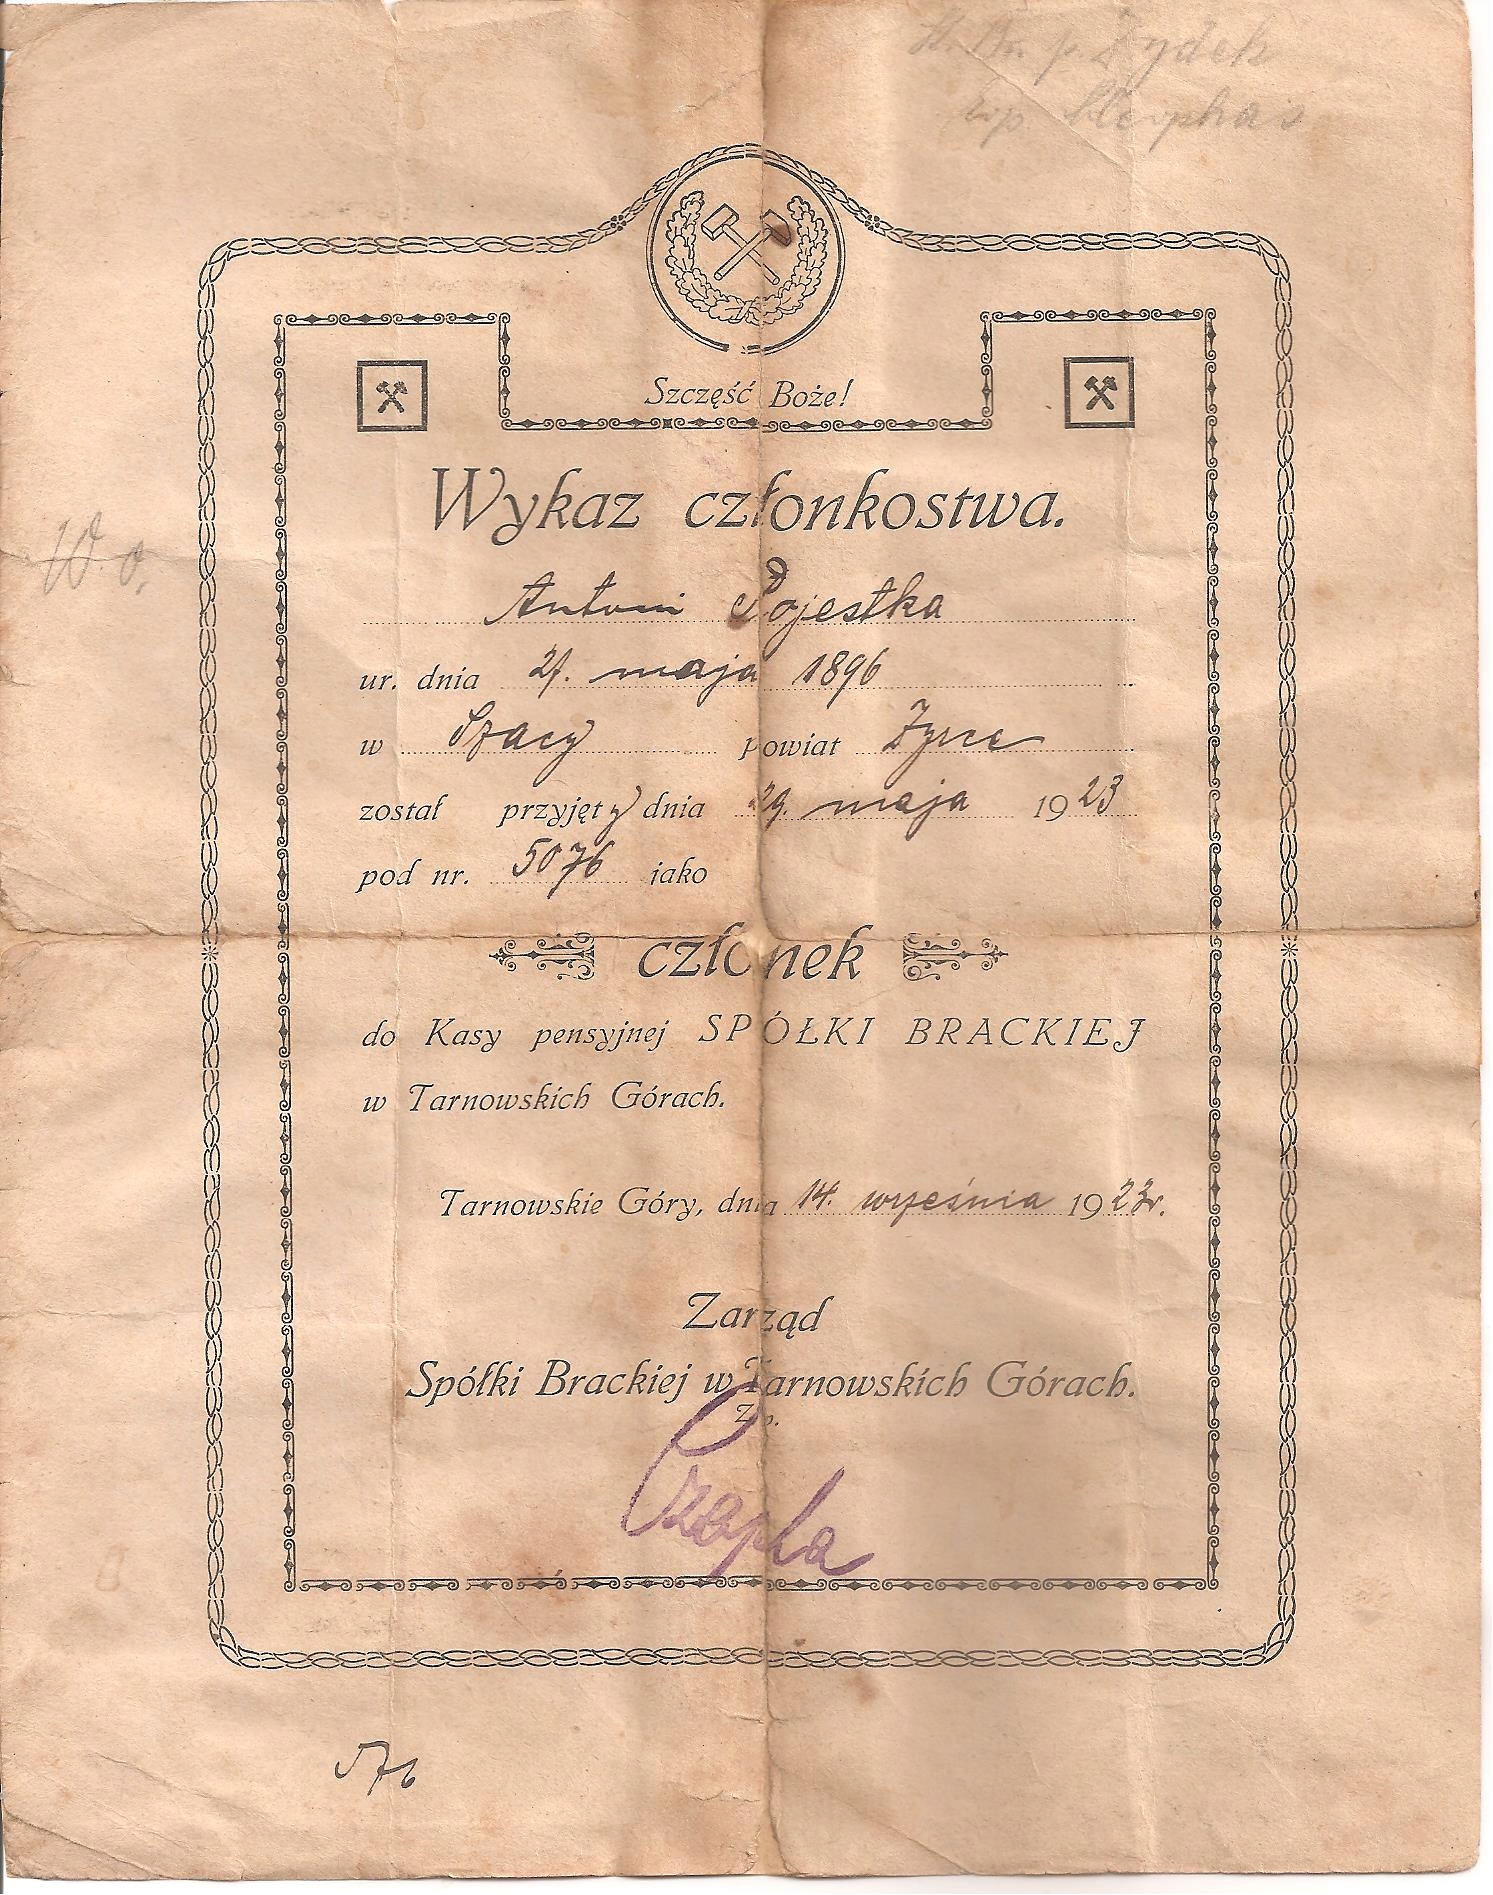 p. Zydek
Szczęść Boże!
Wykaz członkostwa.
W. o.
Antoni Pojestka
ur. dnia 21. maja 1896
w Szacy powiat Zyrce
został przyjęty dnia 29. maja 1923
pod nr. 5076 iako
członek
do Kasy pensyjnej SPÓŁKI BRACKIEJ
w Tarnowskich Górach.
Tarnowskie Góry, dnia 14. września 1923r.
Zarząd
Spółki Brackiej w Tarnowskich Górach.
Z p.
Czapla
576